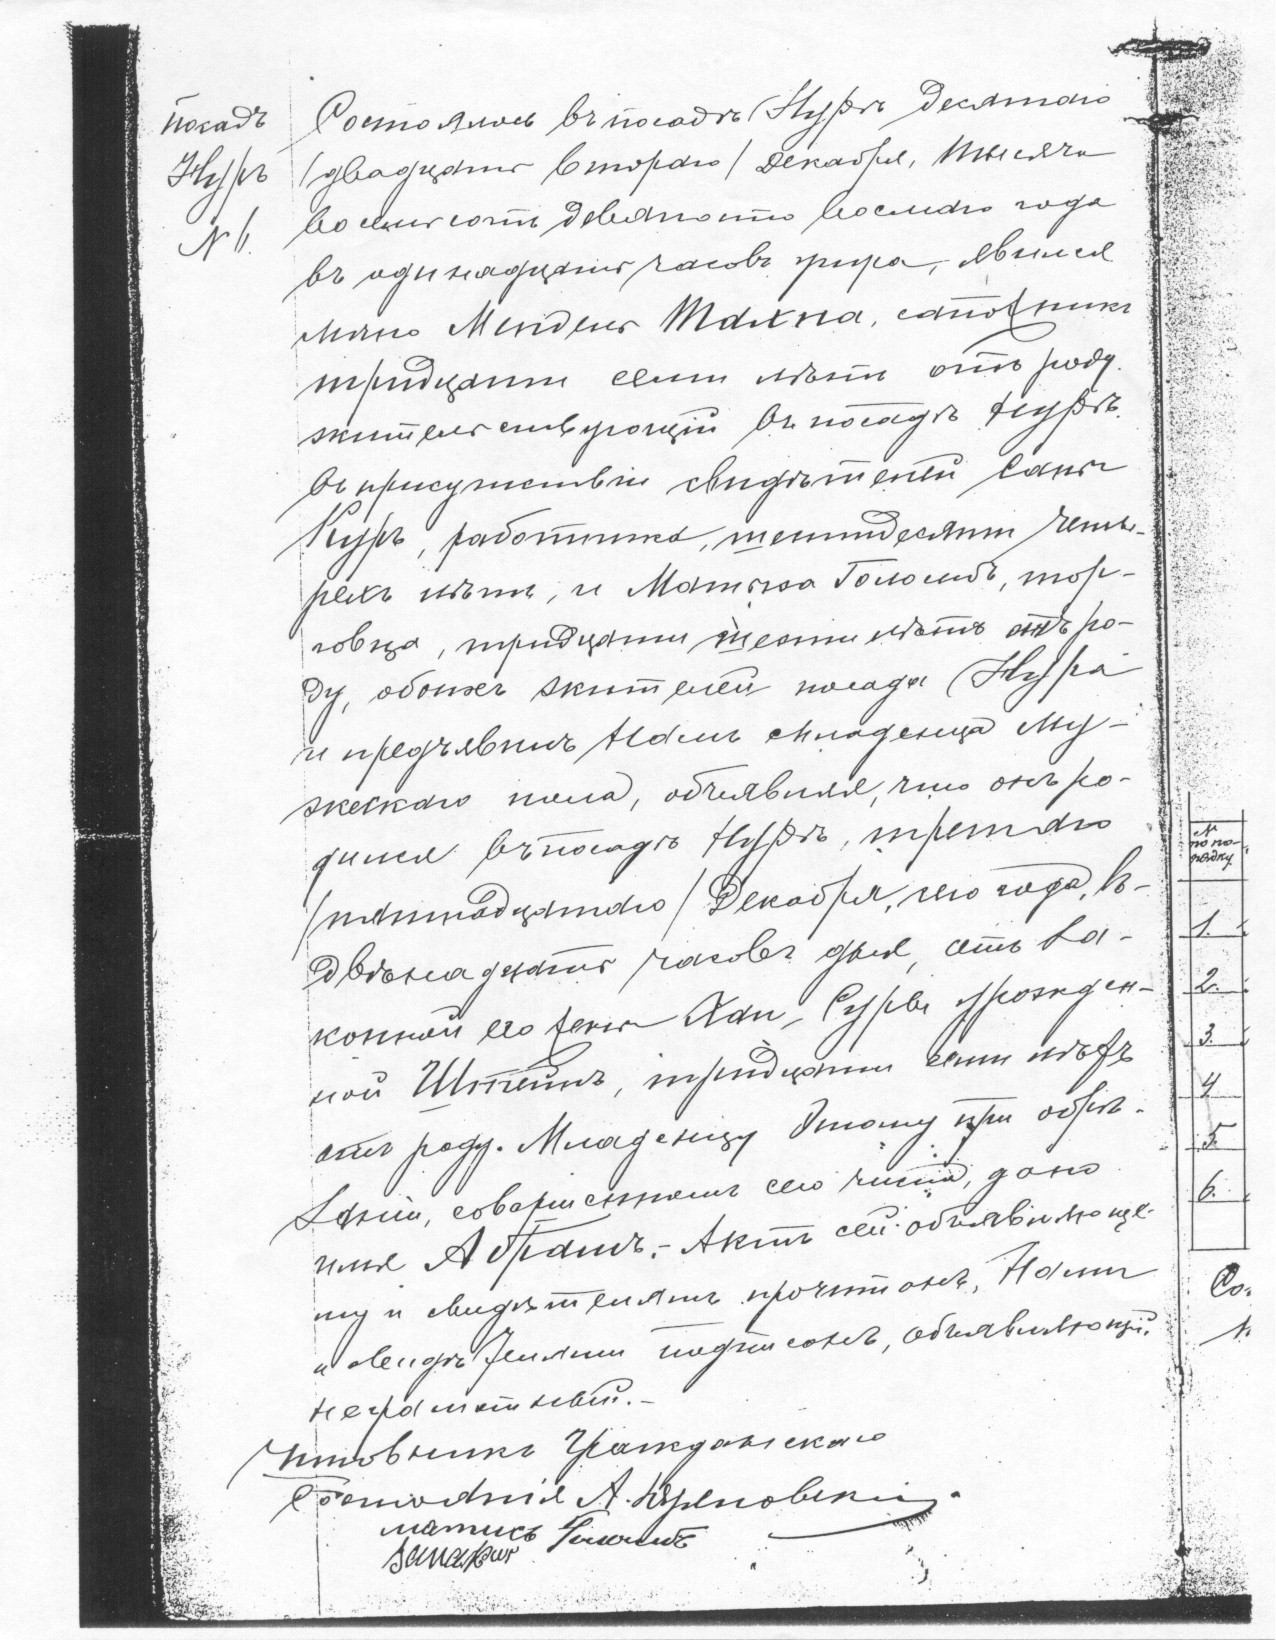 Посадъ
Нуръ
№ 6.
Состоялось въ посадѣ Нурѣ десятаго
/двадцать втораго/ Декабря, тысяча
восемьсотъ девяносто восьмаго года
въ одинадцать часовъ утра, явился
лично Мендель Талхна, сапожникъ
тридцати семи лѣтъ отъ роду
жительствующій въ посадѣ Нурѣ
въ присутствіи свидѣтелей
Куръ, работника, шестидесяти четы-
рехъ лѣтъ, и Матыса Голомбъ, тор-
говца, тридцати шести лѣтъ отъ ро-
ду, обоихъ жителей посада Нура
и предъявилъ Намъ младенца му-
жескаго пола, объявляя, что онъ ро-
дился въ посадѣ Нурѣ, третьяго
/пятнадцатаго/ Декабря, сего года, въ
двѣнадцать часовъ дня, отъ за-
конной его жены Хаи-Суры урожден-
ной Штейнъ, тридцати семи лѣтъ
отъ роду. Младенцу этому при обрѣ-
заніи, совершенномъ сего числа, дано
имя Абрамъ.- Актъ сей объявляюще-
му и свидѣтелямъ прочитанъ, Нами
и свидѣтелями подписанъ, объявляющій
неграмотный.-
Чиновникъ Гражданскаго
Состоянія А.
матысъ Голомбъ
№
по по-
рядку.
1.
2.
3.
4
5.
6.
Со